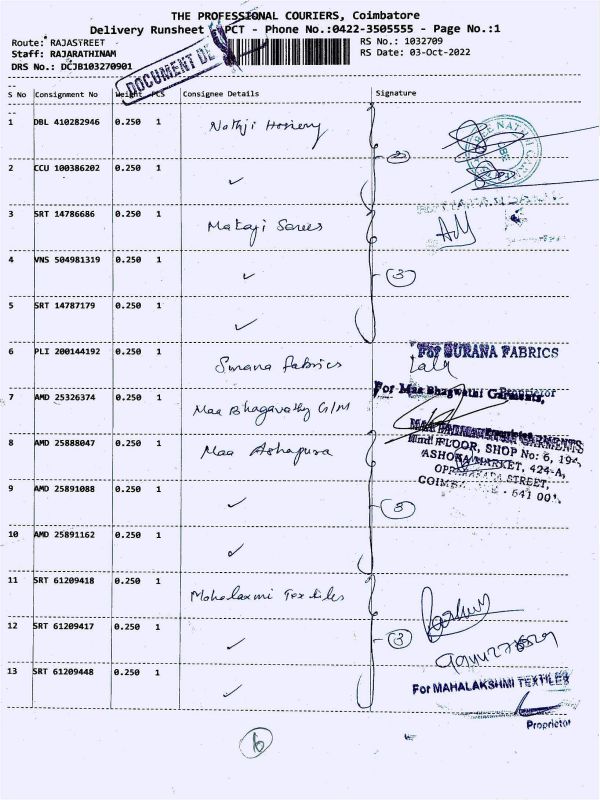 THE PROFESSIONAL COURIERS, Coimbatore
Delivery Runsheet PCT - Phone No.:0422-3505555 - Page No.:1
Route: RAJASTREET RS No.: 1032709
Staff: RAJARATHINAM RS Date: 03-Oct-2022
DRS No.: DCJB103270901
DOCUMENT DE
S No Consignment No Weight PCS Consignee Details Signature
1 DBL 410282946 0.250 1 Nathji Hosiery
2 CCU 100386202 0.250 1 ✓
2
3 SRT 14786686 0.250 1 Makaji Sarees
4 VNS 504981319 0.250 1 ✓ 3
5 SRT 14787179 0.250 1 ✓
6 PLI 200144192 0.250 1 Surana fabrics
For SURANA FABRICS
Proprietor
7 AMD 25326374 0.250 1 Maa Bhagavathy G/M
For Maa Bhagwathi Garments,
8 AMD 25888047 0.250 1 Maa Ashapura
FLOOR, SHOP No: 6, 194,
ASHOKA MARKET, 424-A,
STREET,
9 AMD 25891088 0.250 1 ✓ 3
10 AMD 25891162 0.250 1 ✓
11 SRT 61209418 0.250 1 Mahalaxmi Textiles
12 SRT 61209417 0.250 1 ✓ 3
13 SRT 61209448 0.250 1 ✓
For MAHALAKSHMI TEXTILES
Proprietor
6